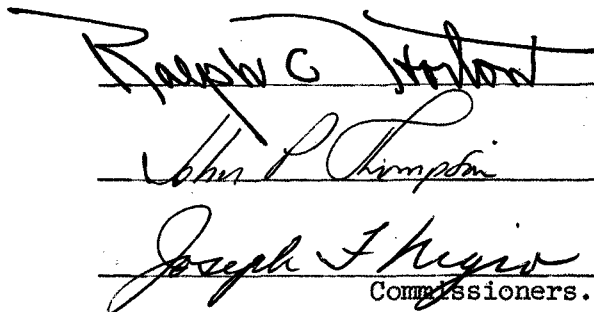 Ralph C Horton
John P Thompson
Joseph F Negro
Commissioners.